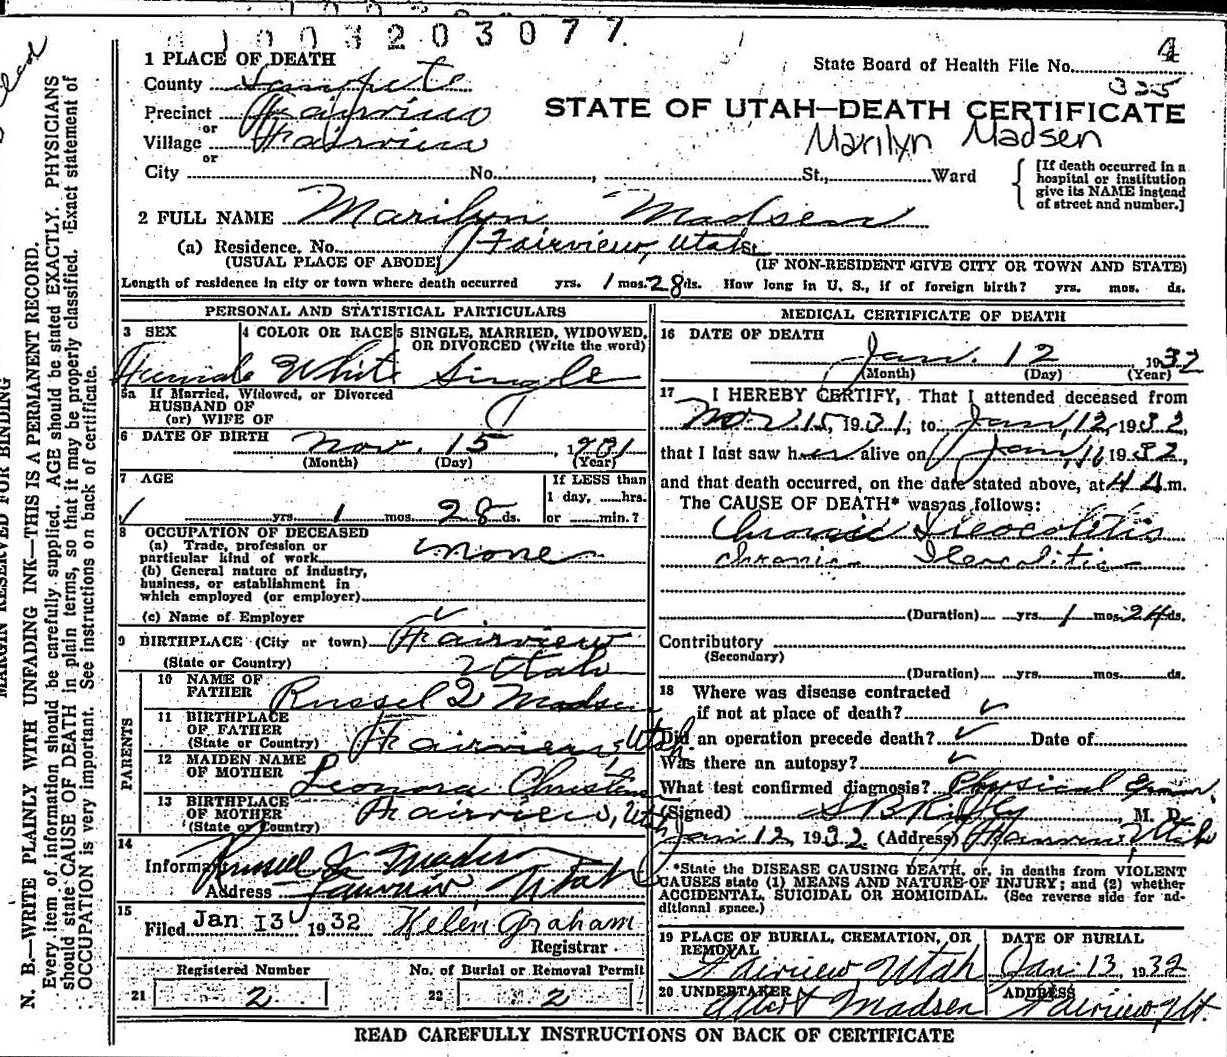 1003203077.
1 PLACE OF DEATH
State Board of Health File No. 4
325
County Sanpete
Precinct Fairview
or
Village Fairview
or
STATE OF UTAH—DEATH CERTIFICATE
Marilyn Madsen
City No. , St., Ward
[If death occurred in a hospital or institution give its NAME instead of street and number.]
2 FULL NAME Marilyn Madsen
(a) Residence. No. Fairview, Utah St.
(USUAL PLACE OF ABODE) (IF NON-RESIDENT GIVE CITY OR TOWN AND STATE)
Length of residence in city or town where death occurred yrs. 1 mos. 28 ds. How long in U. S., if of foreign birth? yrs. mos. ds.
PERSONAL AND STATISTICAL PARTICULARS
3 SEX
4 COLOR OR RACE
5 SINGLE, MARRIED, WIDOWED, OR DIVORCED (Write the word)
Female White Single
5a If Married, Widowed, or Divorced
HUSBAND OF
(or) WIFE OF
6 DATE OF BIRTH Nov. 15, 1931
(Month) (Day) (Year)
7 AGE
If LESS than
1 day, hrs.
or min.?
yrs. 1 mos. 28 ds.
8 OCCUPATION OF DECEASED
(a) Trade, profession or
particular kind of work none
(b) General nature of industry,
business, or establishment in
which employed (or employer)
(c) Name of Employer
9 BIRTHPLACE (City or town) Fairview
(State or Country) Utah
PARENTS
10 NAME OF
FATHER Russel Madsen
11 BIRTHPLACE
OF FATHER
(State or Country) Fairview, Utah
12 MAIDEN NAME
OF MOTHER Leonora Christen
13 BIRTHPLACE
OF MOTHER
(State or Country) Fairview, Utah
14
Informant Russel Madsen
Address Fairview Utah
15
Filed Jan 13 1932 Helen Graham
Registrar
Registered Number
21 2
No. of Burial or Removal Permit
22 2
MEDICAL CERTIFICATE OF DEATH
16 DATE OF DEATH
Jan. 12 1932
(Month) (Day) (Year)
17 I HEREBY CERTIFY, That I attended deceased from
Nov 15, 1931, to Jan, 12, 1932,
that I last saw her alive on Jan, 1932,
and that death occurred, on the date stated above, at 4 A.m.
The CAUSE OF DEATH* was as follows:
Chronic Ileocolitis
Chronic Ileocolitis
(Duration) yrs. 1 mos. 24 ds.
Contributory
(Secondary)
(Duration) yrs. mos. ds.
18 Where was disease contracted
if not at place of death?
Did an operation precede death? Date of
Was there an autopsy?
What test confirmed diagnosis? Physical Exam.
(Signed) M. D.
Jan 12, 1932 (Address) Fairview Utah
*State the DISEASE CAUSING DEATH, or, in deaths from VIOLENT
CAUSES state (1) MEANS AND NATURE OF INJURY; and (2) whether
ACCIDENTAL, SUICIDAL OR HOMICIDAL. (See reverse side for ad-
ditional space.)
19 PLACE OF BURIAL, CREMATION, OR
REMOVAL
Fairview Utah
DATE OF BURIAL
Jan. 13, 1932
20 UNDERTAKER
Albert Madsen
ADDRESS
Fairview, Ut.
READ CAREFULLY INSTRUCTIONS ON BACK OF CERTIFICATE
MARGIN RESERVED FOR BINDING
N. B.—WRITE PLAINLY WITH UNFADING INK—THIS IS A PERMANENT RECORD.
Every item of information should be carefully supplied. AGE should be stated EXACTLY. PHYSICIANS
should state CAUSE OF DEATH in plain terms, so that it may be properly classified. Exact statement of
OCCUPATION is very important. See instructions on back of certificate.